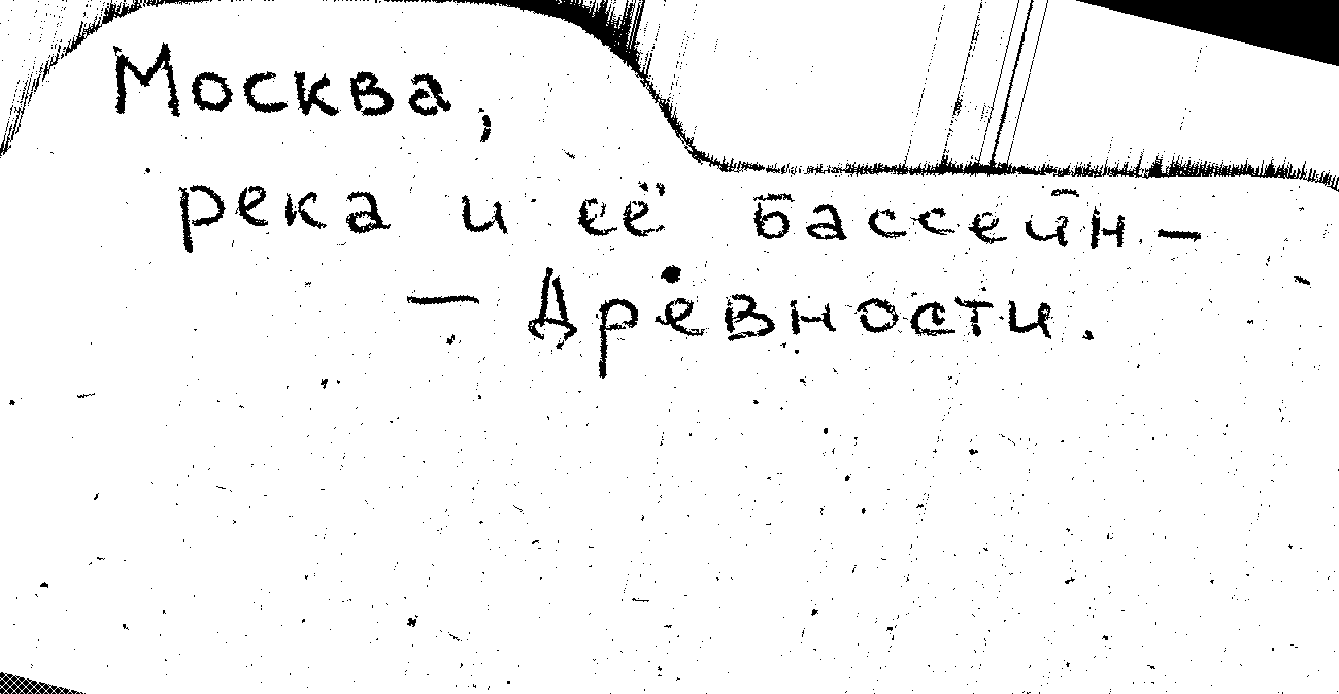 Москва,
река и её бассейн —
— Древности.